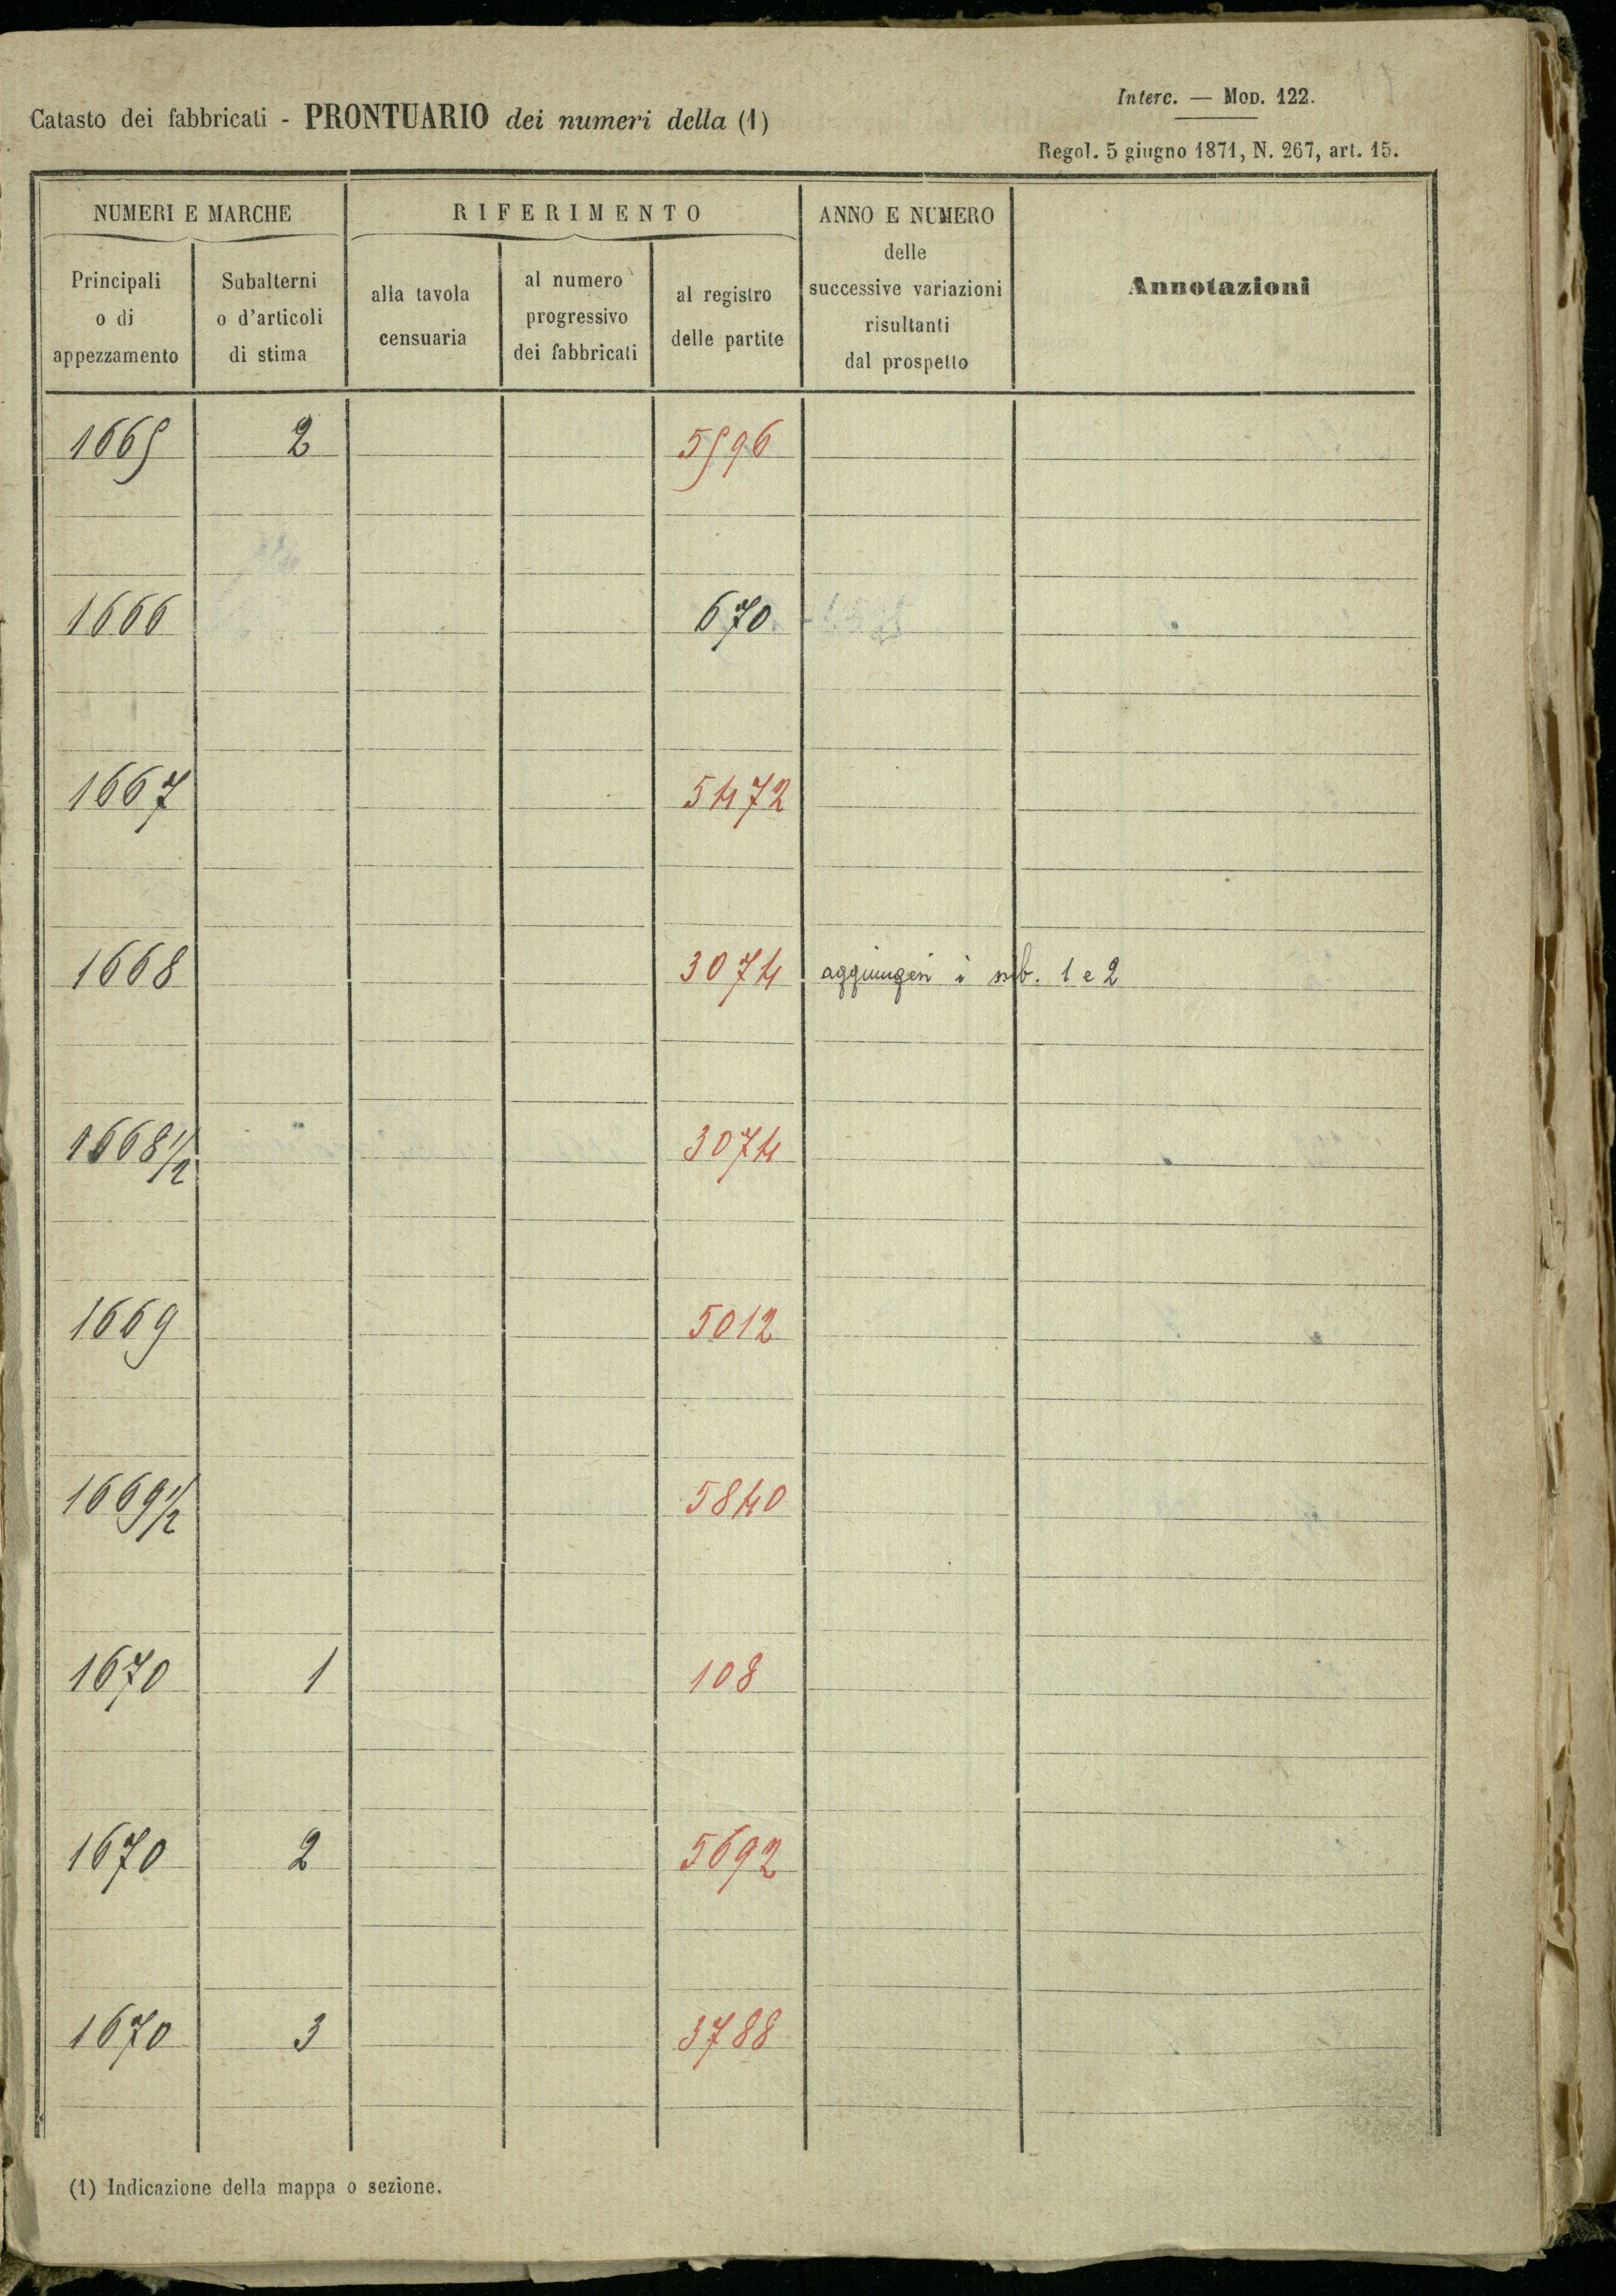 Catasto dei fabbricati - PRONTUARIO dei numeri della (1)
Interc. — MOD. 122.
Regol. 5 giugno 1871, N. 267, art. 15.
NUMERI E MARCHE
RIFERIMENTO
ANNO E NUMERO
delle
successive variazioni
risultanti
dal prospetto
Annotazioni
Principali
o di
appezzamento
Subalterni
o d'articoli
di stima
alla tavola
censuaria
al numero
progressivo
dei fabbricati
al registro
delle partite
1665 2 5596
1666 670
1667 5472
1668 3074 aggiungesi i sub. 1 e 2
1668 1/2 3074
1669 5012
1669 1/2 5840
1670 1 108
1670 2 5692
1670 3 3788
(1) Indicazione della mappa o sezione.